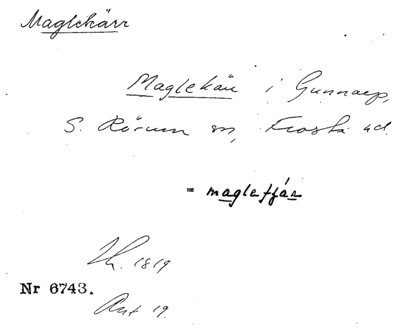 Maglekärr
Maglekärr i Gunnarp,
S. Rörum sn, Frosta hd.
= magletjär
1819
Nr 6743.
Ant 19.